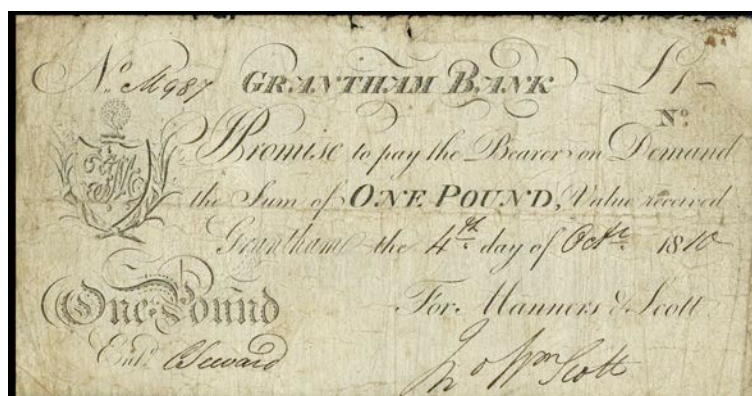 No. M987 GRANTHAM BANK £1-
No.
I Promise to pay the Bearer on Demand
the Sum of ONE POUND, Value received
Grantham the 4th. day of Octr. 1810
One Pound For Manners & Scott
Entd. C Seward Jno Wm Scott